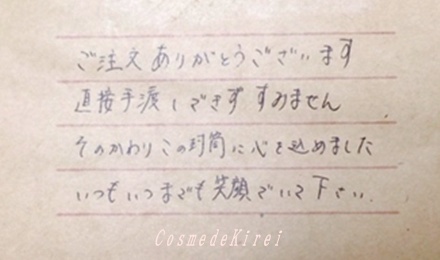 ご注文ありがとうございます
直接手渡しできず すみません
そのかわりこの封筒に心を込めました
いつもいつまでも笑顔でいて下さい.
CosmedeKirei